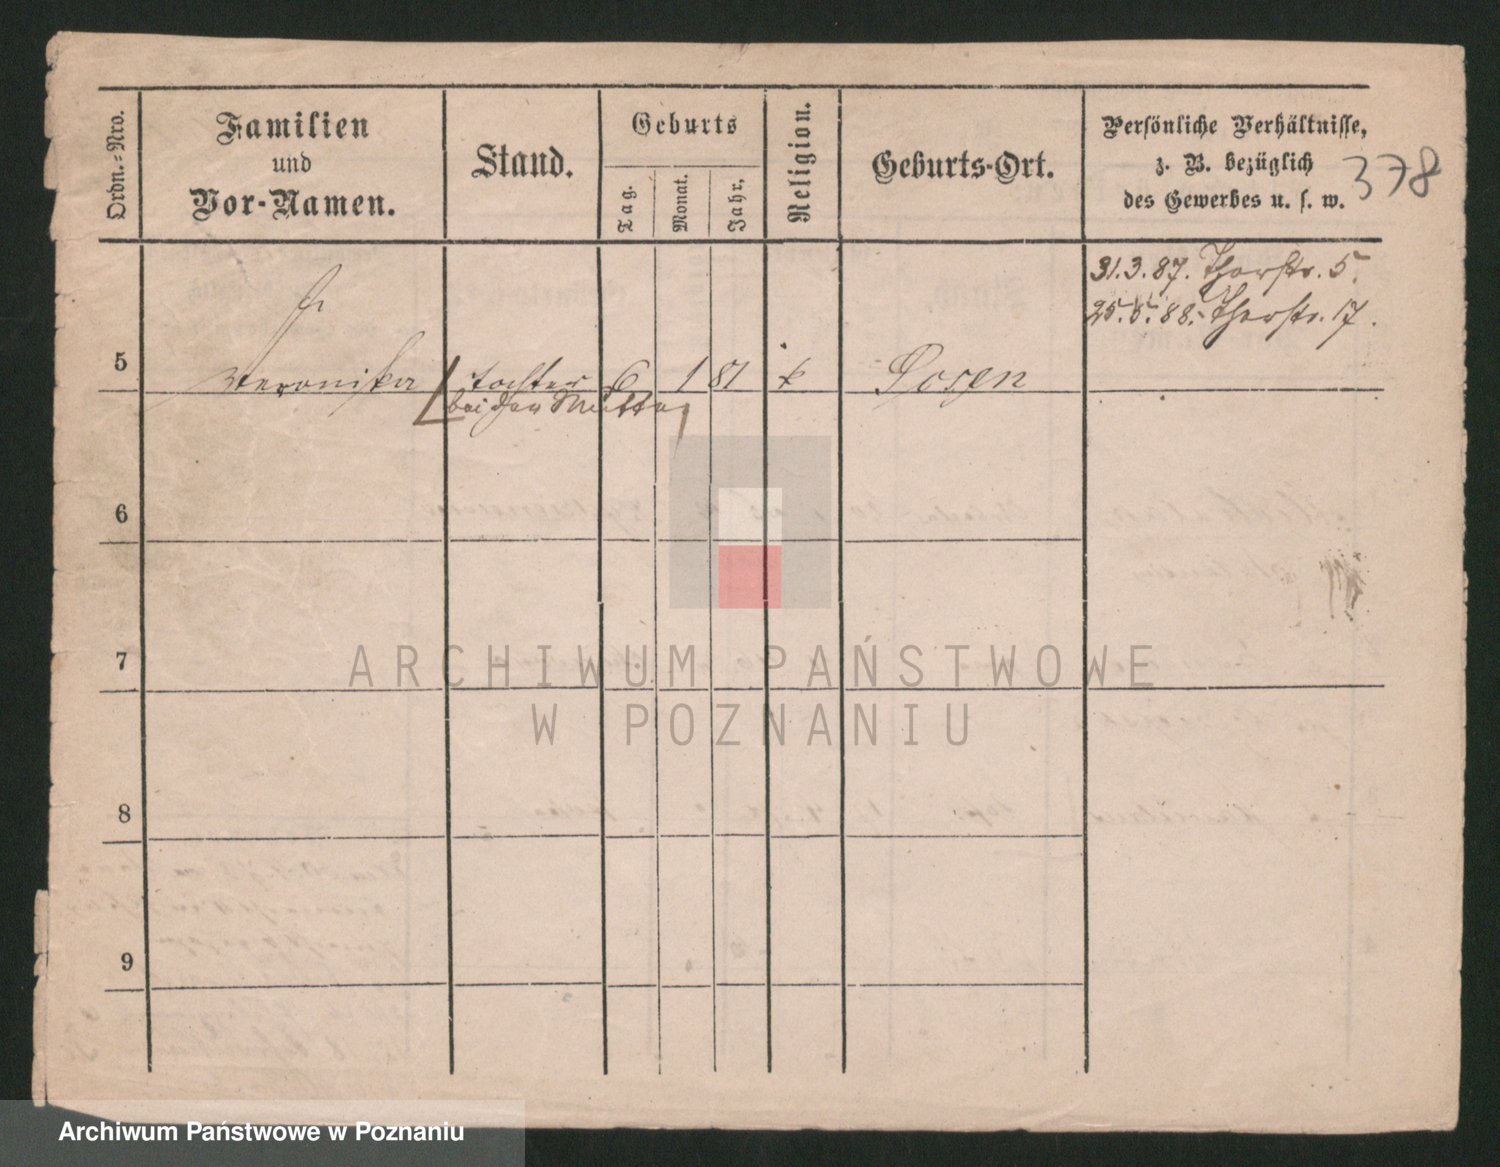 Ordn.-Nro.
Familien
und
Vor-Namen.
Stand.
Geburts
Tag.
Monat.
Jahr,
Religion.
Geburts-Ort.
Persönliche Verhältnisse,
z. B. bezüglich
des Gewerbes u. s. w.
378
31.3.87. Thorstr. 5.
25.5.88. Thorstr. 17.
5 Veronika Tochter 6 1 81 k Posen
bei der Mutter
6
7
8
9
ARCHIWUM PAŃSTWOWE
W POZNANIU
Archiwum Państwowe w Poznaniu